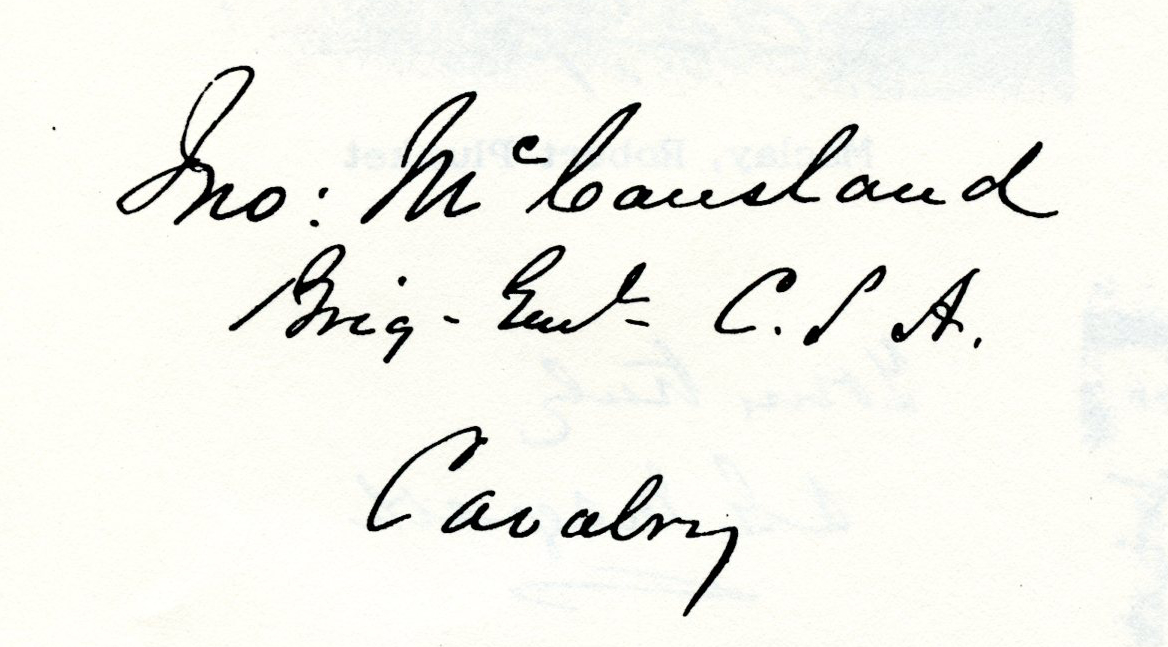 Jno: McCausland
Brig- Genl- C. S A.
Cavalry